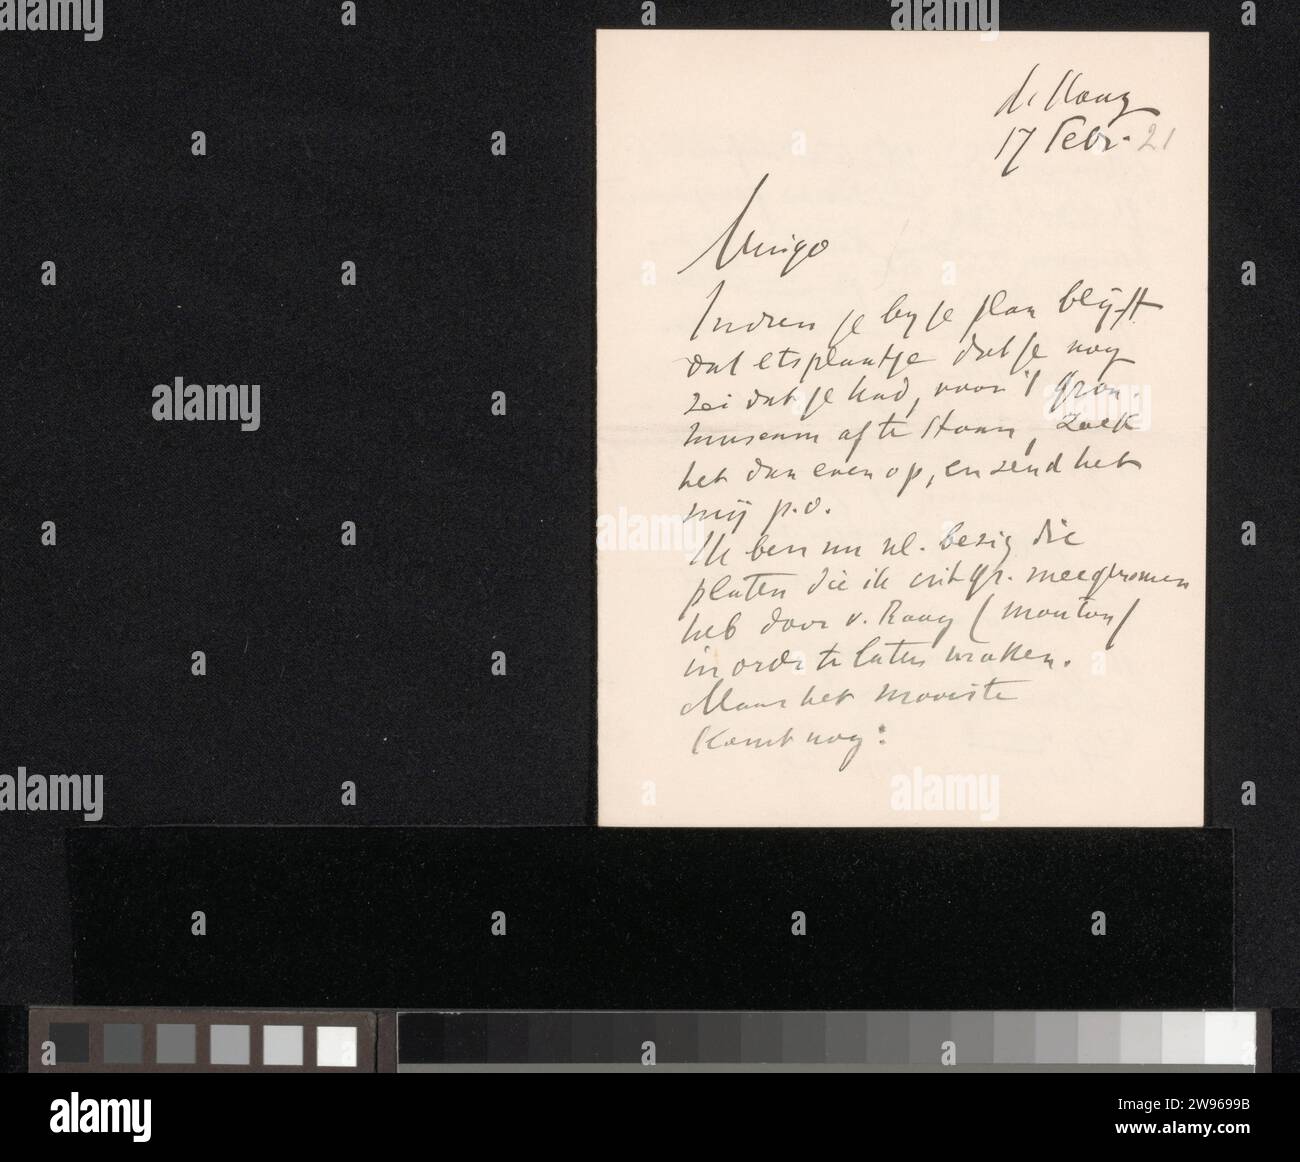 de Haag
17 Febr. 21
Amigo
Indien je by je plan blijft
dat etsplaatje dat je nog
zei dat je had, voor 't Gron.
museum af te staan, zoek
het dan even op, en zend het
mij p.o.
Ik ben nu nl. bezig die
platen die ik uit Gr. meegenomen
heb door v. Raay (mouton)
in orde te laten maken.
Maar het mooiste
komt nog:
alamy
Image ID: 2W9699B
www.alamy.com